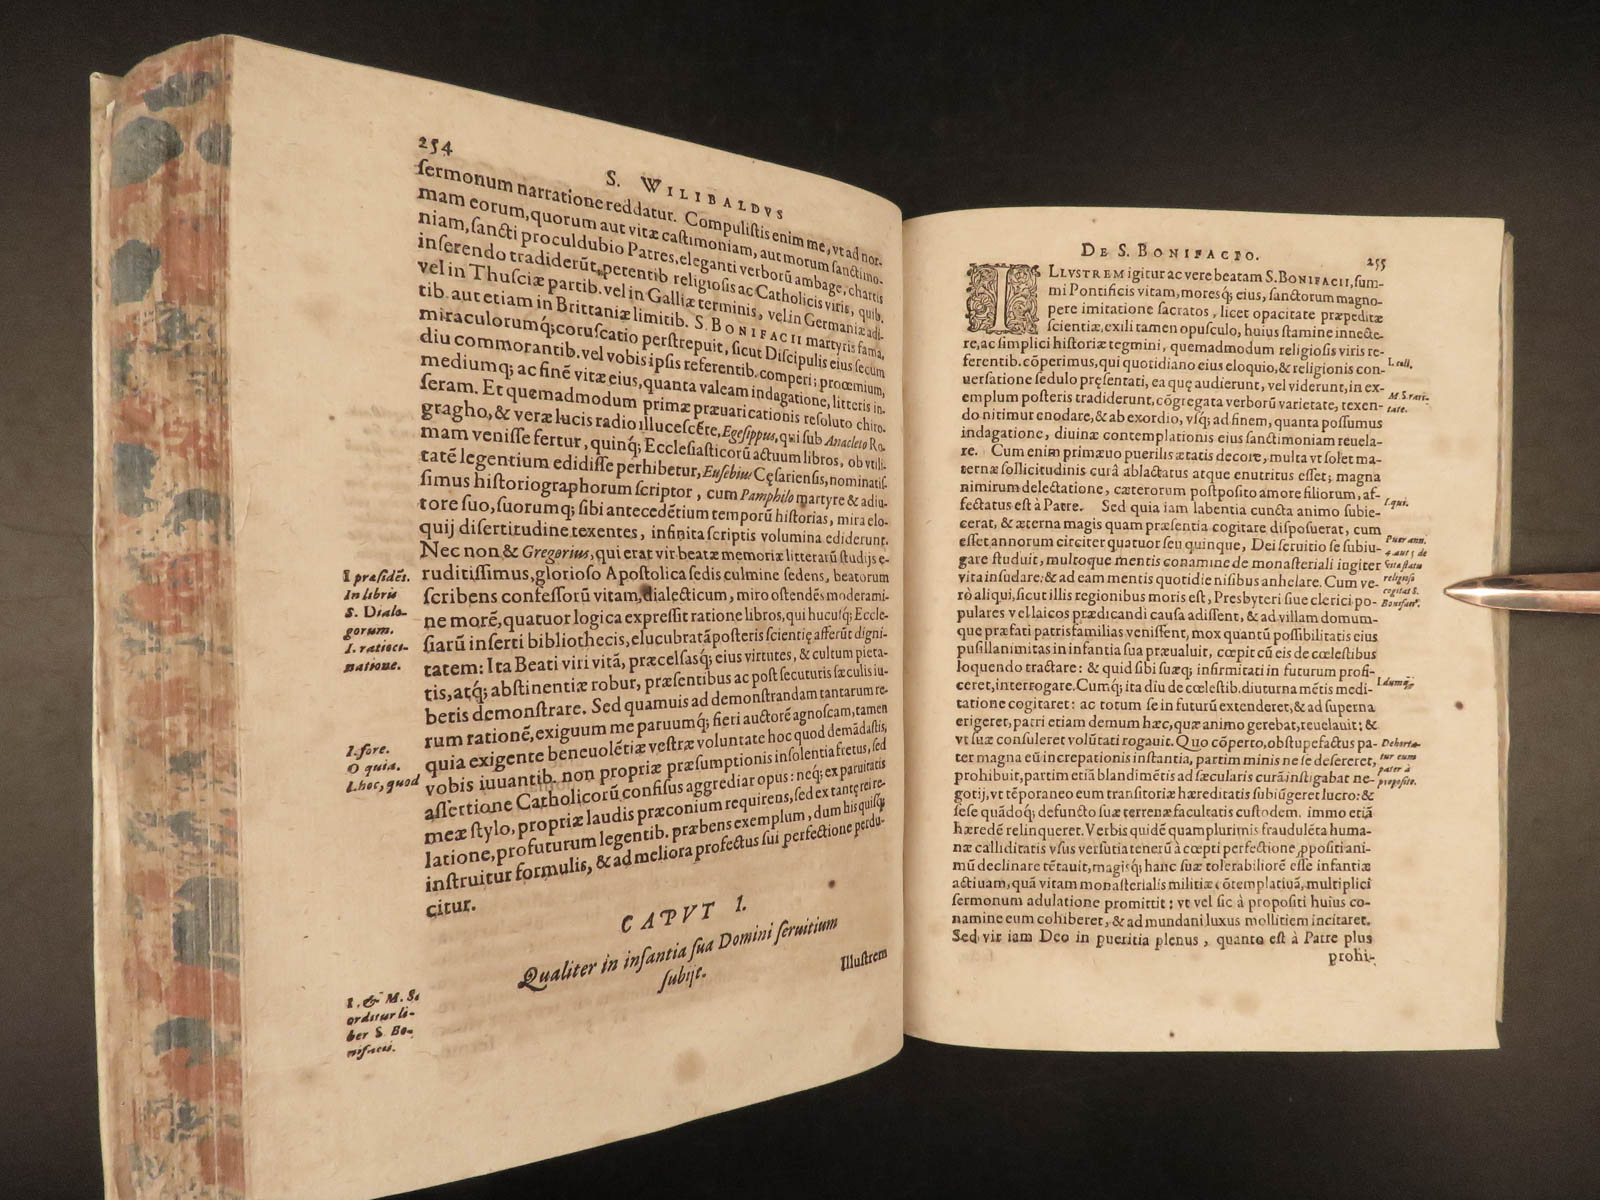 254
S. WILIBALDVS
sermonum narratione reddatur. Compulistis enim me, vt ad nor-
mam eorum, quorum aut vitæ castimoniam, aut morum sanctimo-
niam, sancti proculdubio Patres, eleganti verborū ambage, chartis
inserendo tradiderūt, petentib. religiosis ac Catholicis viris, quib.
vel in Thusciæ partib. vel in Galliæ terminis, vel in Germaniæ adi-
tib. aut etiam in Brittaniæ limitib. S. BONIFACII martyris fama,
miraculorumq; coruscatio perstrepuit, sicut Discipulis eius secum
diu commorantib. vel vobis ipsis referentib. comperi; proœmium,
mediumq; ac finē vitæ eius, quanta valeam indagatione, litteris in-
seram. Et quemadmodum primæ præuaricationis resoluto chiro-
gragho, & veræ lucis radio illucescēte, Egesippus, qui sub Anacleto Ro-
mam venisse fertur, quinq; Ecclesiasticorū actuum libros, ob vtili-
tatē legentium edidisse perhibetur, Eusebius Cęsariensis, nominatis-
simus historiographorum scriptor, cum Pamphilo martyre & adiu-
tore suo, suorumq; sibi antecedētium temporū historias, mira elo-
quij disertitudine texentes, infinita scriptis volumina ediderunt.
Nec non & Gregorius, qui erat vir beatæ memoriæ litterarū studijs e-
ruditissimus, glorioso Apostolica sedis culmine sedens, beatorum
scribens confessorū vitam, dialecticum, miro ostendēs moderami-
ne morē, quatuor logica expressit ratione libros, qui hucusq; Eccle-
siarū inserti bibliothecis, elucubratā posteris scientię afferūt digni-
tatem: Ita Beati viri vitā, præcelsasq; eius virtutes, & cultum pieta-
tis, atq; abstinentiæ robur, præsentibus ac post secuturis sæculis iu-
betis demonstrare. Sed quamuis ad demonstrandam tantarum re-
rum rationē, exiguum me paruumq; fieri auctorē agnoscam, tamen
quia exigente beneuolētiæ vestræ voluntate hoc quod demādastis,
vobis iuuantib. non propriæ præsumptionis insolentia fretus, sed
assertione Catholicorū confisus aggrediar opus: neq; ex paruitatis
meæ stylo, propriæ laudis præconium requirens, sed ex tantę rei re-
latione, profuturum legentib. præbens exemplum, dum his quisq;
instruitur formulis, & ad meliora profectus sui perfectione perdu-
citur.
I præsidēs.
In libris
S. Dialo-
gorum.
I. ratioci-
natione.
I. fore.
O quia.
I. hoc, quod
CAPVT I.
Qualiter in infantia sua Domini seruitium
subijt.
I. & M. S.
orditur li-
ber S. Bo-
nifacii.
Illustrem
DE S. BONIFACIO.
255
ILLVSTREM igitur ac vere beatam S. BONIFACII, sum-
mi Pontificis vitam, moresq; eius, sanctorum magno-
pere imitatione sacratos, licet opacitate præpeditæ
scientiæ, exili tamen opusculo, huius stamine innecte-
re, ac simplici historiæ tegmini, quemadmodum religiosis viris re-
ferentib. cōperimus, qui quotidiano eius eloquio, & religionis con-
uersatione sedulo pręsentati, ea quę audierunt, vel viderunt, in ex-
emplum posteris tradiderunt, cōgregata verborū varietate, texen-
do nitimur enodare, & ab exordio, vsq; ad finem, quanta possumus
indagatione, diuinæ contemplationis eius sanctimoniam reuela-
re. Cum enim primæuo puerilis ætatis decore, multa vt solet ma-
ternæ sollicitudinis curâ ablactatus atque enutritus esset; magna
nimirum delectatione, cæterorum postposito amore filiorum, af-
fectatus est à Patre. Sed quia iam labentia cuncta animo subie-
cerat, & æterna magis quam præsentia cogitare disposuerat, cum
esset annorum circiter quatuor seu quinque, Dei seruitio se subiu-
gare studuit, multoque mentis conamine de monasteriali ingiter
vita insudare: & ad eam mentis quotidie nisibus anhelare. Cum ve-
rò aliqui, sicut illis regionibus moris est, Presbyteri siue clerici po-
pulares vel laicos prædicandi causa adissent, & ad villam domum-
que præfati patrisfamilias venissent, mox quantū possibilitatis eius
pusillanimitas in infantia sua præualuit, cœpit cū eis de cœlestibus
loquendo tractare: & quid sibi suæq; infirmitati in futurum profi-
ceret, interrogare. Cumq; ita diu de cœlestib. diuturna mētis medi-
tatione cogitaret: ac totum se in futurū extenderet, & ad superna
erigeret, patri etiam demum hæc, quæ animo gerebat, reuelauit: &
vt suæ consuleret volūtati rogauit. Quo cōperto, obstupefactus pa-
ter magna eū increpationis instantia, partim minis ne se desereret,
prohibuit, partim etiā blandimētis ad sæcularis curā instigabat ne-
gotij, vt tēporaneo eum transitoriæ hæreditatis subiūgeret lucro: &
sese quādoq; defuncto suæ terrenæ facultatis custodem. immo etiā
hæredē relinqueret. Verbis quidē quamplurimis fraudulēta huma-
næ calliditatis vsus versutia tenerū à cœpti perfectione ꝓpositi ani-
mū declinare tētauit, magisq; hanc suæ tolerabiliorē esse infantiæ
actiuam, quā vitam monasterialis militiæ cōtemplatiuā, multiplici
sermonum adulatione promittit: vt vel sic à propositi huius co-
namine eum cohiberet, & ad mundani luxus mollitiem incitaret.
Sed vir iam Deo in pueritia plenus, quanto est à Patre plus
prohi-
I. tali.
M S. rari-
tate.
I. qui.
Puer ann.
4. aut 5 de
vita statu
religioso
cogitat S.
Bonifac⁹.
I. dumq;
Dehorta-
tur eum
pater à
proposito.